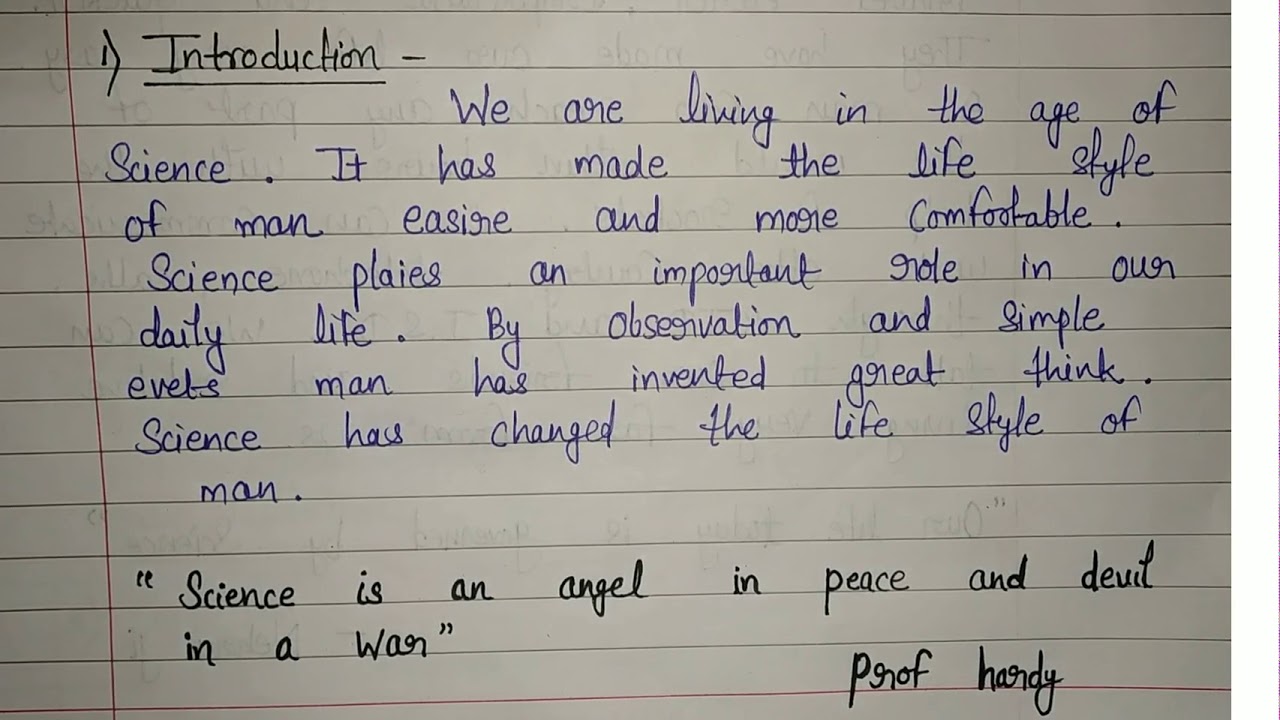 i) Introduction -
We are living in the age of
Science. It has made the life style
of man easire and more Comfortable.
Science plaies an important role in our
daily life. By observation and simple
evets man has invented great think.
Science has changed the life style of
man.
"Science is an angel in peace and devil
in a war"
Prof hardy